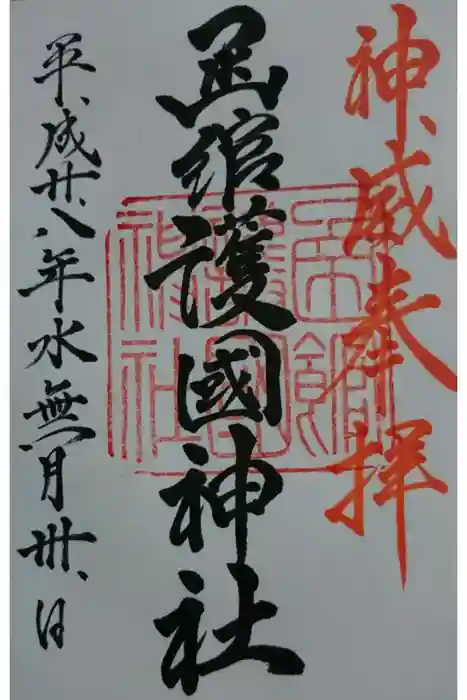 神威奉拝
函館護國神社
平成廿八年水無月卅日
函館
護國
神社